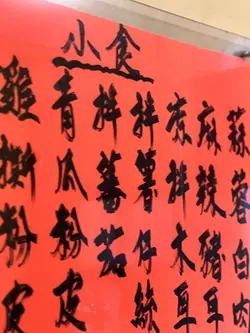 小食
蒜蓉白
麻辣豬耳
拌木耳
拌薯仔絲
拌蕃茄
青瓜粉皮
雞撕粉皮